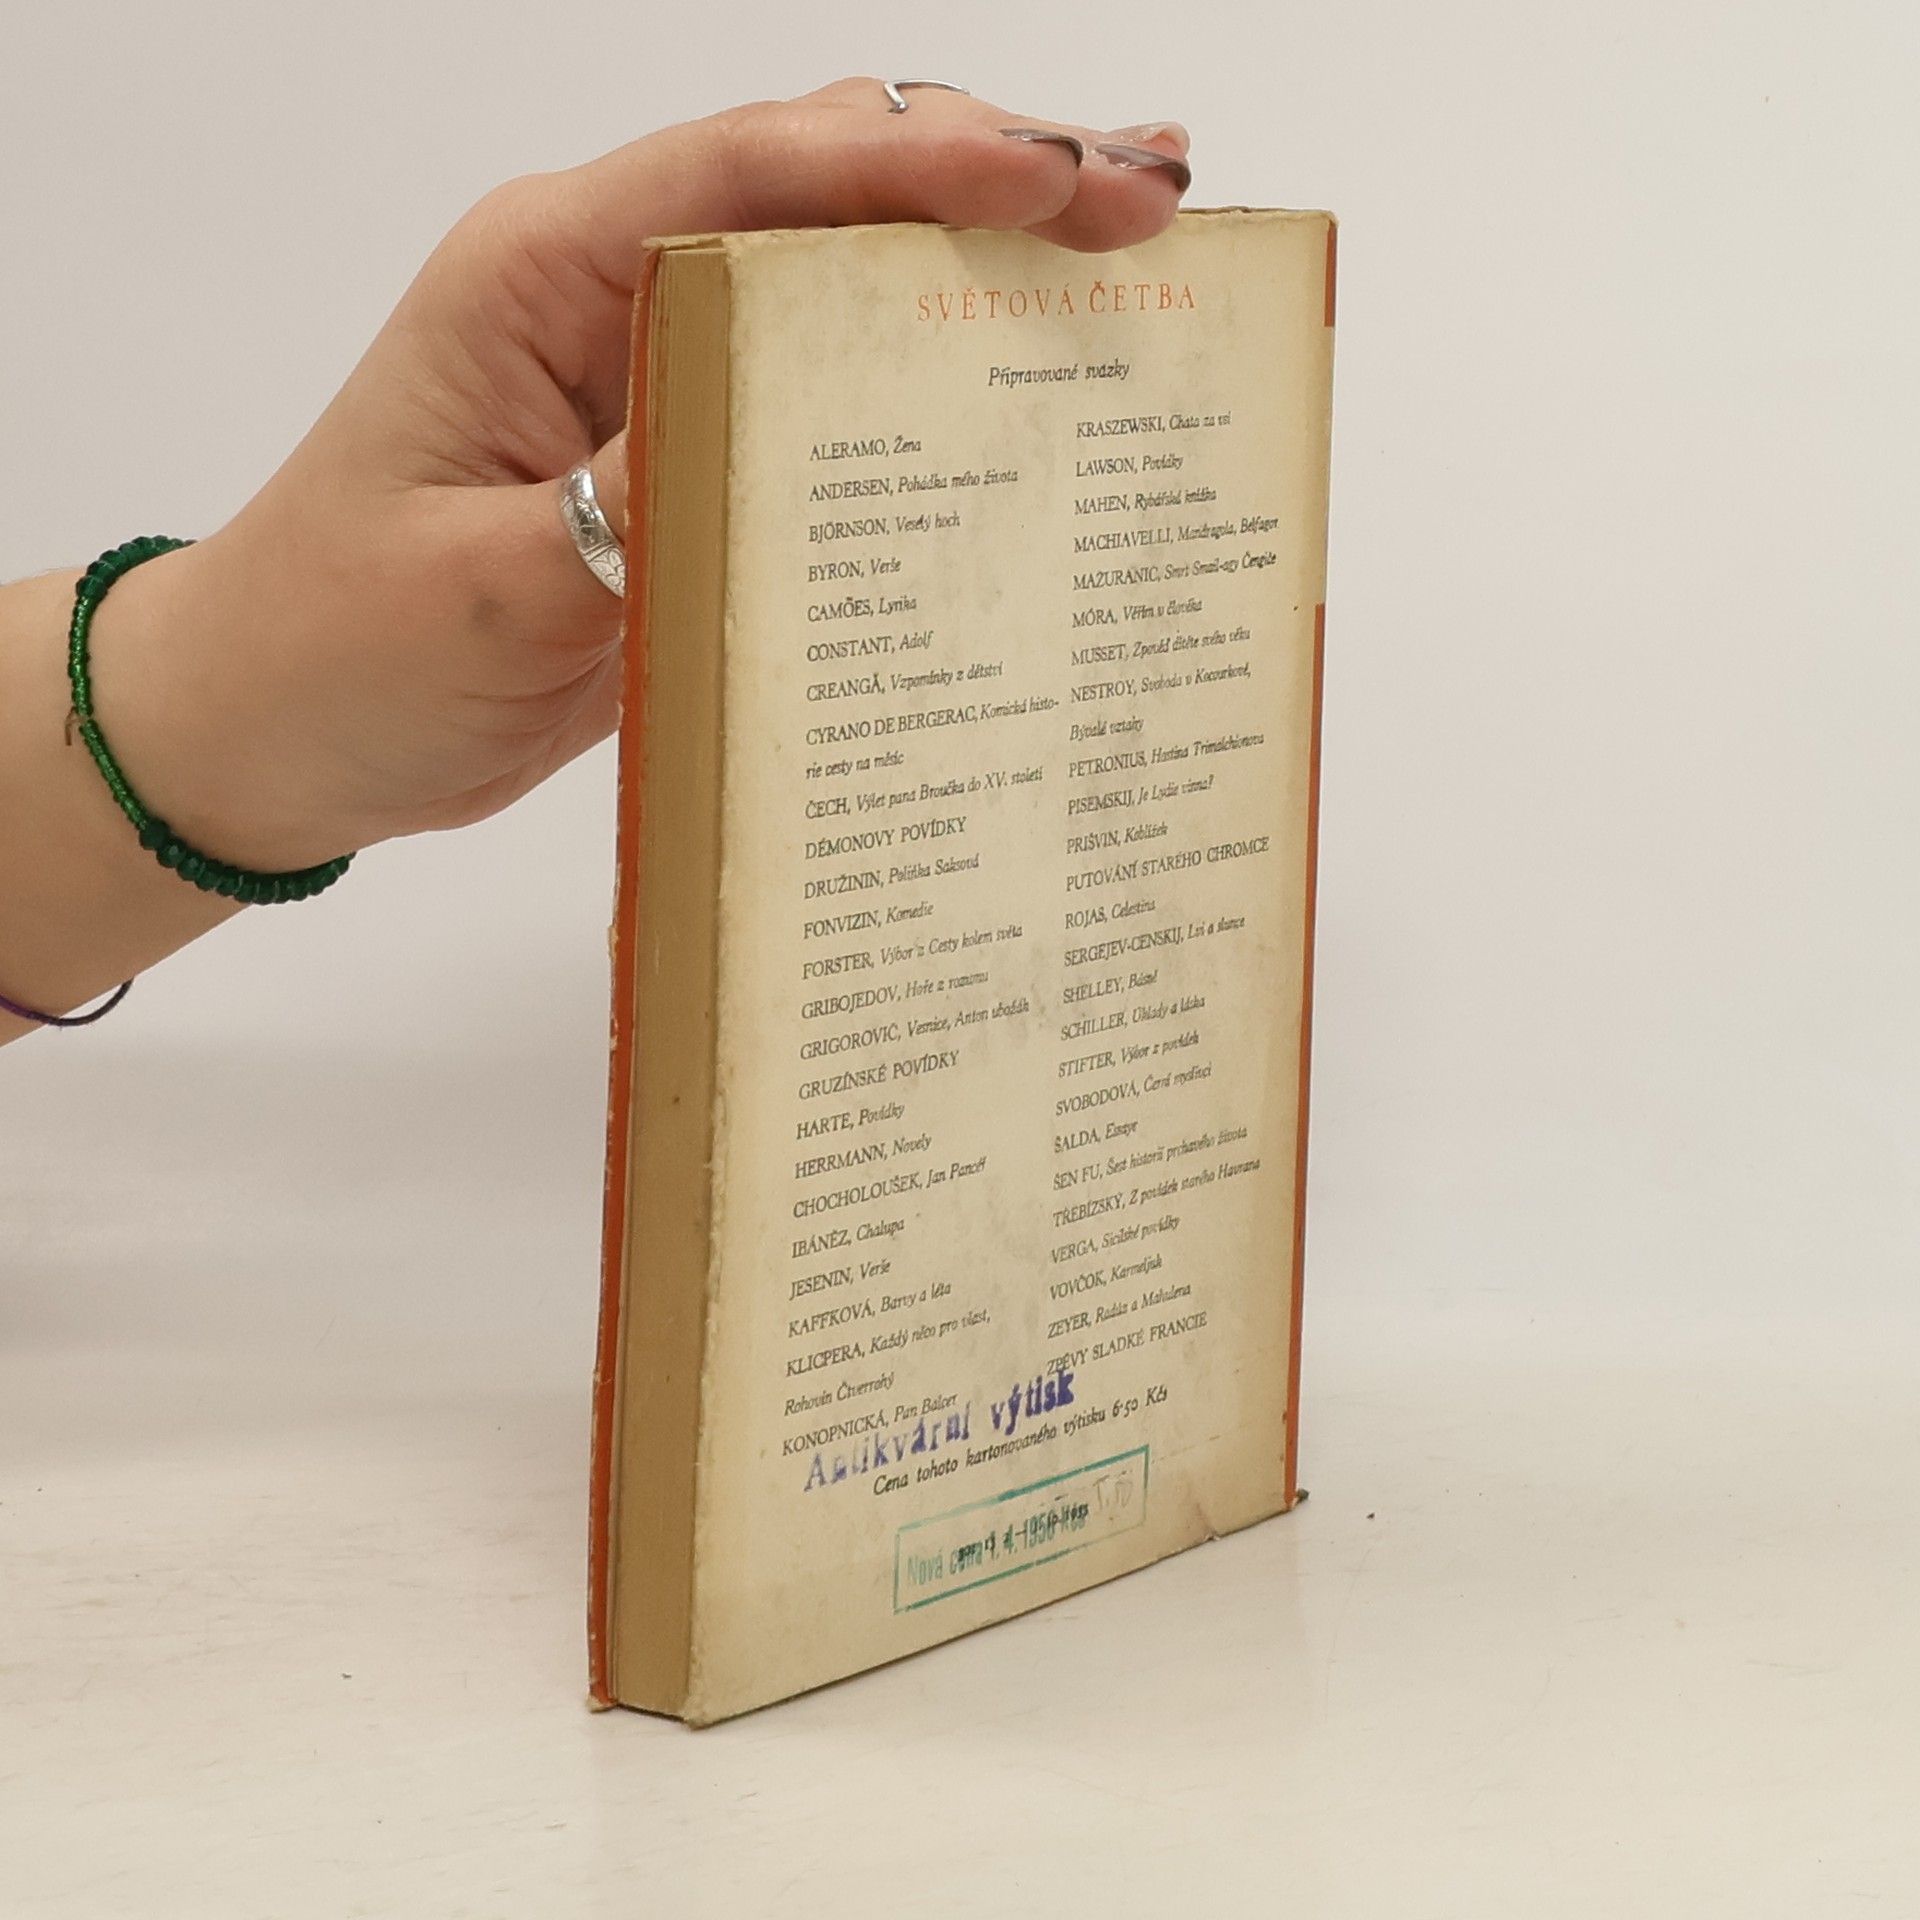 SVĚTOVÁ ČETBA
Připravované svazky
ALERAMO, Žena
ANDERSEN, Pohádka mého života
BJÖRNSON, Veselý hoch
BYRON, Verše
CAMÕES, Lyrika
CONSTANT, Adolf
CREANGĂ, Vzpomínky z dětství
CYRANO DE BERGERAC, Komická histo-
rie cesty na měsíc
ČECH, Výlet pana Broučka do XV. století
DÉMONOVY POVÍDKY
DRUŽININ, Polinka Saksová
FONVIZIN, Komedie
FORSTER, Výbor z Cesty kolem světa
GRIBOJEDOV, Hoře z rozumu
GRIGOROVIČ, Vesnice, Anton ubožák
GRUZÍNSKÉ POVÍDKY
HARTE, Povídky
HERRMANN, Novely
CHOCHOLOUŠEK, Jan Pancéř
IBÁNĚZ, Chalupa
JESENIN, Verše
KAFFKOVÁ, Barvy a léta
KLICPERA, Každý něco pro vlast,
Rohovín Čtverrohý
KONOPNICKÁ, Pan Balcer
KRASZEWSKI, Chata za vsí
LAWSON, Povídky
MAHEN, Rybářská knížka
MACHIAVELLI, Mandragola, Belfagor
MAŽURANIC, Smrt Smail-agy Čengiće
MÓRA, Věřím v člověka
MUSSET, Zpověď dítěte svého věku
NESTROY, Svoboda v Kocourkově,
Bývalé vztahy
PETRONIUS, Hostina Trimalchionova
PISEMSKIJ, Je Lydie vinna?
PRIŠVIN, Koblížek
PUTOVÁNÍ STARÉHO CHROMCE
ROJAS, Celestina
SERGEJEV-CENSKIJ, Lvi a slunce
SHELLEY, Básně
SCHILLER, Úklady a láska
STIFTER, Výbor z povídek
SVOBODOVÁ, Černí myslivci
ŠALDA, Essaye
ŠEN FU, Šest historií prchavého života
TŘEBÍZSKÝ, Z povídek starého Havrana
VERGA, Sicilské povídky
VOVČOK, Karmeljuk
ZEYER, Radúz a Mahulena
ZPĚVY SLADKÉ FRANCIE
Antikvární výtisk
Cena tohoto kartonovaného výtisku 6·50 Kčs
Nová cena 1. 4. 1956 Kčs